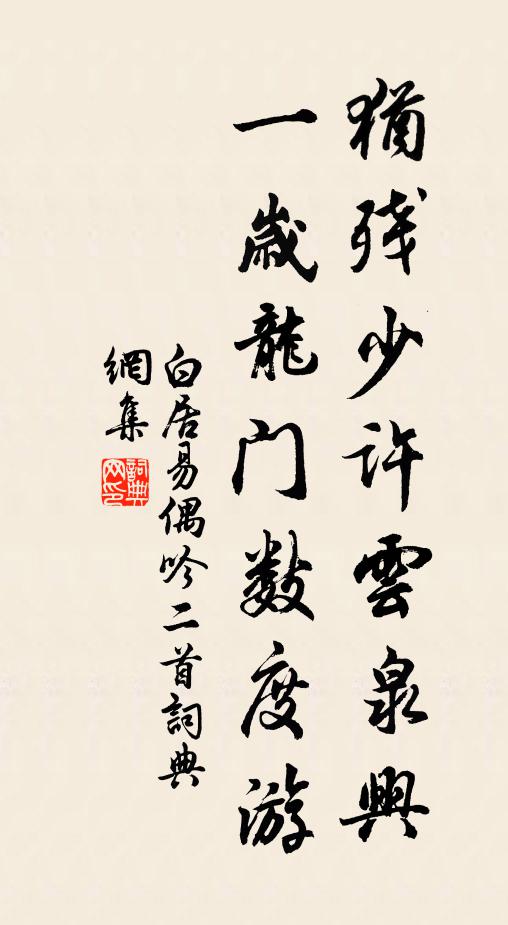 猶残少許雲泉興
一歲龍門数度游
白居易偶吟二首詞典
網集
詞典
网印